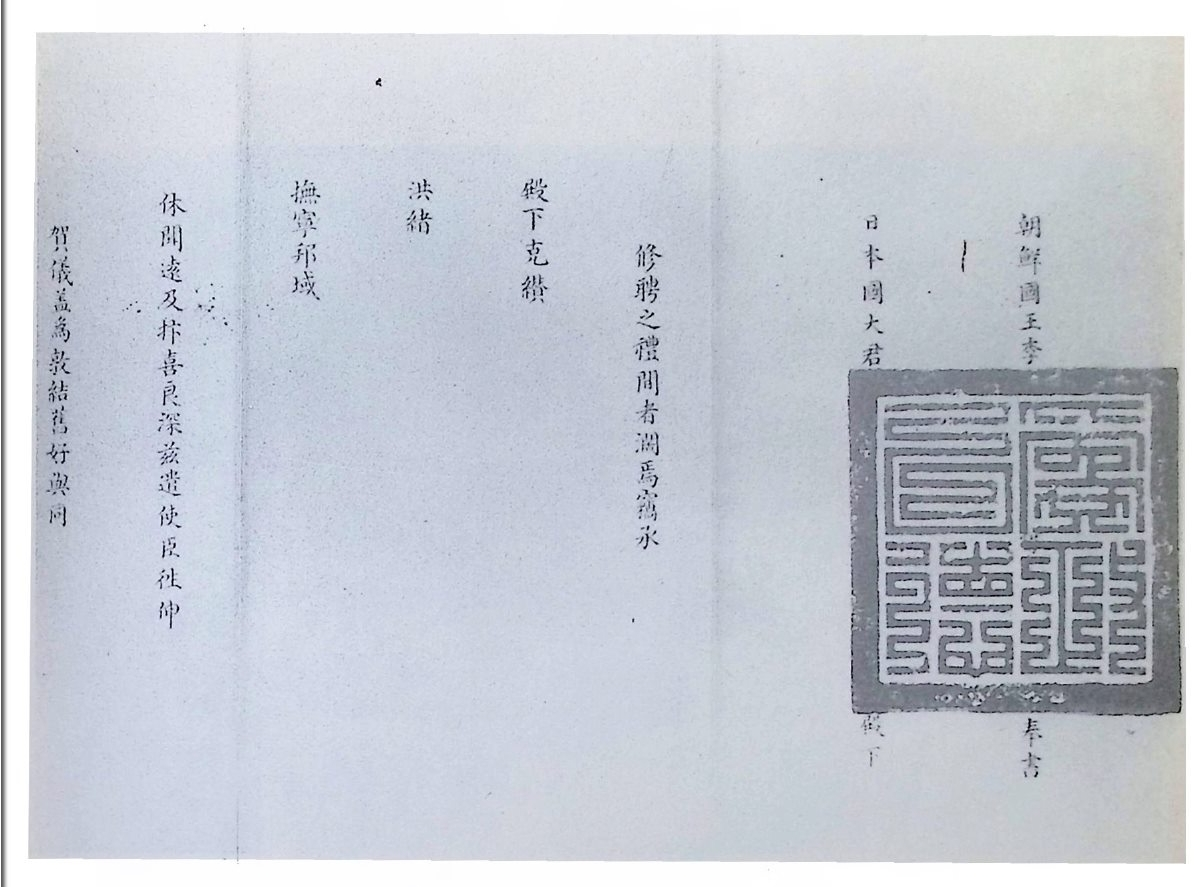 朝鮮國王李奉書
日本國大君殿下
爲政以德
修聘之禮間者濶焉竊承
殿下克纉
洪緒
撫寧邦域
休聞遠及抃喜良深玆遣使臣徃伸
賀儀盖爲敦結舊好與同